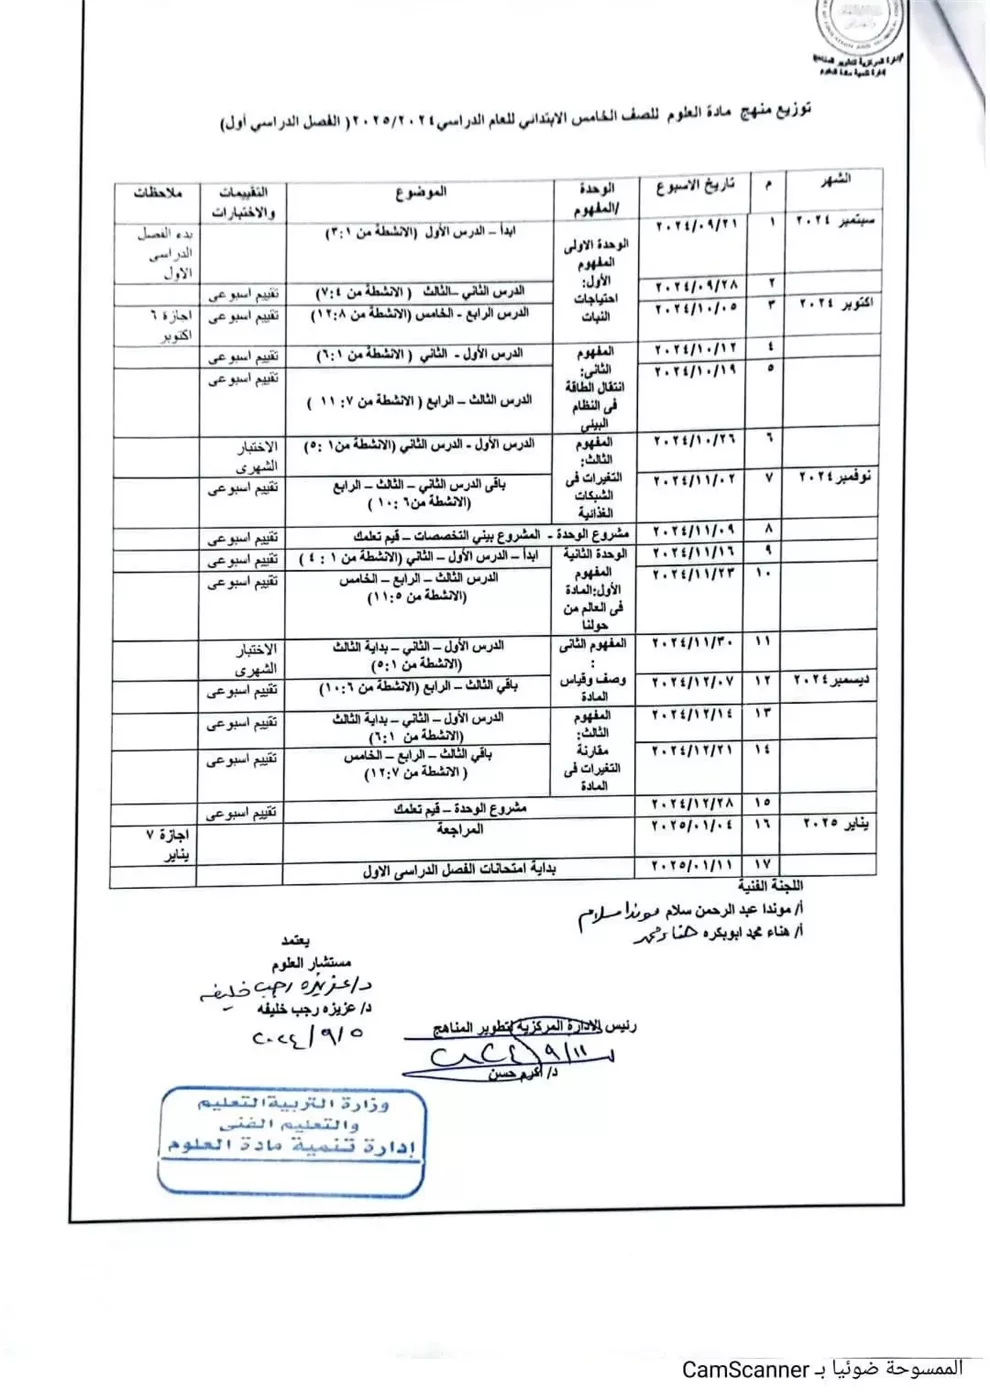 الإدارة المركزية لتطوير المناهج
إدارة تنمية مادة العلوم
توزيع منهج مادة العلوم للصف الخامس الابتدائي للعام الدراسي ٢٠٢٥/٢٠٢٤( الفصل الدراسي أول)
الشهر م تاريخ الاسبوع الوحدة /المفهوم الموضوع التقييمات والاختبارات ملاحظات
سبتمبر ٢٠٢٤ ١ ٢٠٢٤/٠٩/٢١ الوحدة الاولى المفهوم الأول: احتياجات النبات ابدأ – الدرس الأول (الانشطة من ٣:١) بدء الفصل الدراسي الاول
٢ ٢٠٢٤/٠٩/٢٨ الدرس الثاني –الثالث (الانشطة من ٧:٤) تقييم اسبوعى
اكتوبر ٢٠٢٤ ٣ ٢٠٢٤/١٠/٠٥ الدرس الرابع - الخامس (الانشطة من ١٢:٨) تقييم اسبوعى اجازة ٦ اكتوبر
٤ ٢٠٢٤/١٠/١٢ المفهوم الثانى: انتقال الطاقة فى النظام البيئى الدرس الأول - الثاني (الانشطة من ٦:١) تقييم اسبوعى
٥ ٢٠٢٤/١٠/١٩ الدرس الثالث – الرابع ( الانشطة من ٧: ١١ ) تقييم اسبوعى
٦ ٢٠٢٤/١٠/٢٦ المفهوم الثالث: التغيرات فى الشبكات الغذائية الدرس الأول - الدرس الثاني (الانشطة من١ :٥) الاختبار الشهرى
نوفمبر ٢٠٢٤ ٧ ٢٠٢٤/١١/٠٢ باقى الدرس الثاني – الثالث – الرابع (الانشطة من٦ :١٠) تقييم اسبوعى
٨ ٢٠٢٤/١١/٠٩ مشروع الوحدة - المشروع بيني التخصصات – قيم تعلمك تقييم اسبوعى
٩ ٢٠٢٤/١١/١٦ الوحدة الثانية المفهوم الأول:المادة فى العالم من حولنا ابدأ – الدرس الأول – الثاني (الانشطة من ١ : ٤ ) تقييم اسبوعى
١٠ ٢٠٢٤/١١/٢٣ الدرس الثالث – الرابع – الخامس (الانشطة من ١١:٥) تقييم اسبوعى
١١ ٢٠٢٤/١١/٣٠ المفهوم الثانى : وصف وقياس المادة الدرس الأول – الثاني – بداية الثالث (الانشطة من ٥:١) الاختبار الشهرى
ديسمبر ٢٠٢٤ ١٢ ٢٠٢٤/١٢/٠٧ باقي الثالث – الرابع (الانشطة من ١٠:٦) تقييم اسبوعى
١٣ ٢٠٢٤/١٢/١٤ المفهوم الثالث: مقارنة التغيرات فى المادة الدرس الأول – الثاني – بداية الثالث (الانشطة من ٦:١) تقييم اسبوعى
١٤ ٢٠٢٤/١٢/٢١ باقي الثالث – الرابع – الخامس ( الانشطة من ١٢:٧) تقييم اسبوعى
١٥ ٢٠٢٤/١٢/٢٨ مشروع الوحدة – قيم تعلمك تقييم اسبوعى
يناير ٢٠٢٥ ١٦ ٢٠٢٥/٠١/٠٤ المراجعة اجازة ٧ يناير
١٧ ٢٠٢٥/٠١/١١ بداية امتحانات الفصل الدراسى الاول
اللجنة الفنية
أ/ موندا عبد الرحمن سلام موندا سلام
أ/ هناء محمد ابوبكره هناء محمد
يعتمد
مستشار العلوم
د/ عزيزه رجب خليفه
د/ عزيزه رجب خليفه
٢٠٢٤/٩/٥
رئيس الادارة المركزية لتطوير المناهج
٢٠٢٤/٩/١١
د/ أكرم حسن
وزارة التربية التعليم
والتعليم الفنى
إدارة تنمية مادة العلوم
الممسوحة ضوئيا بـ CamScanner